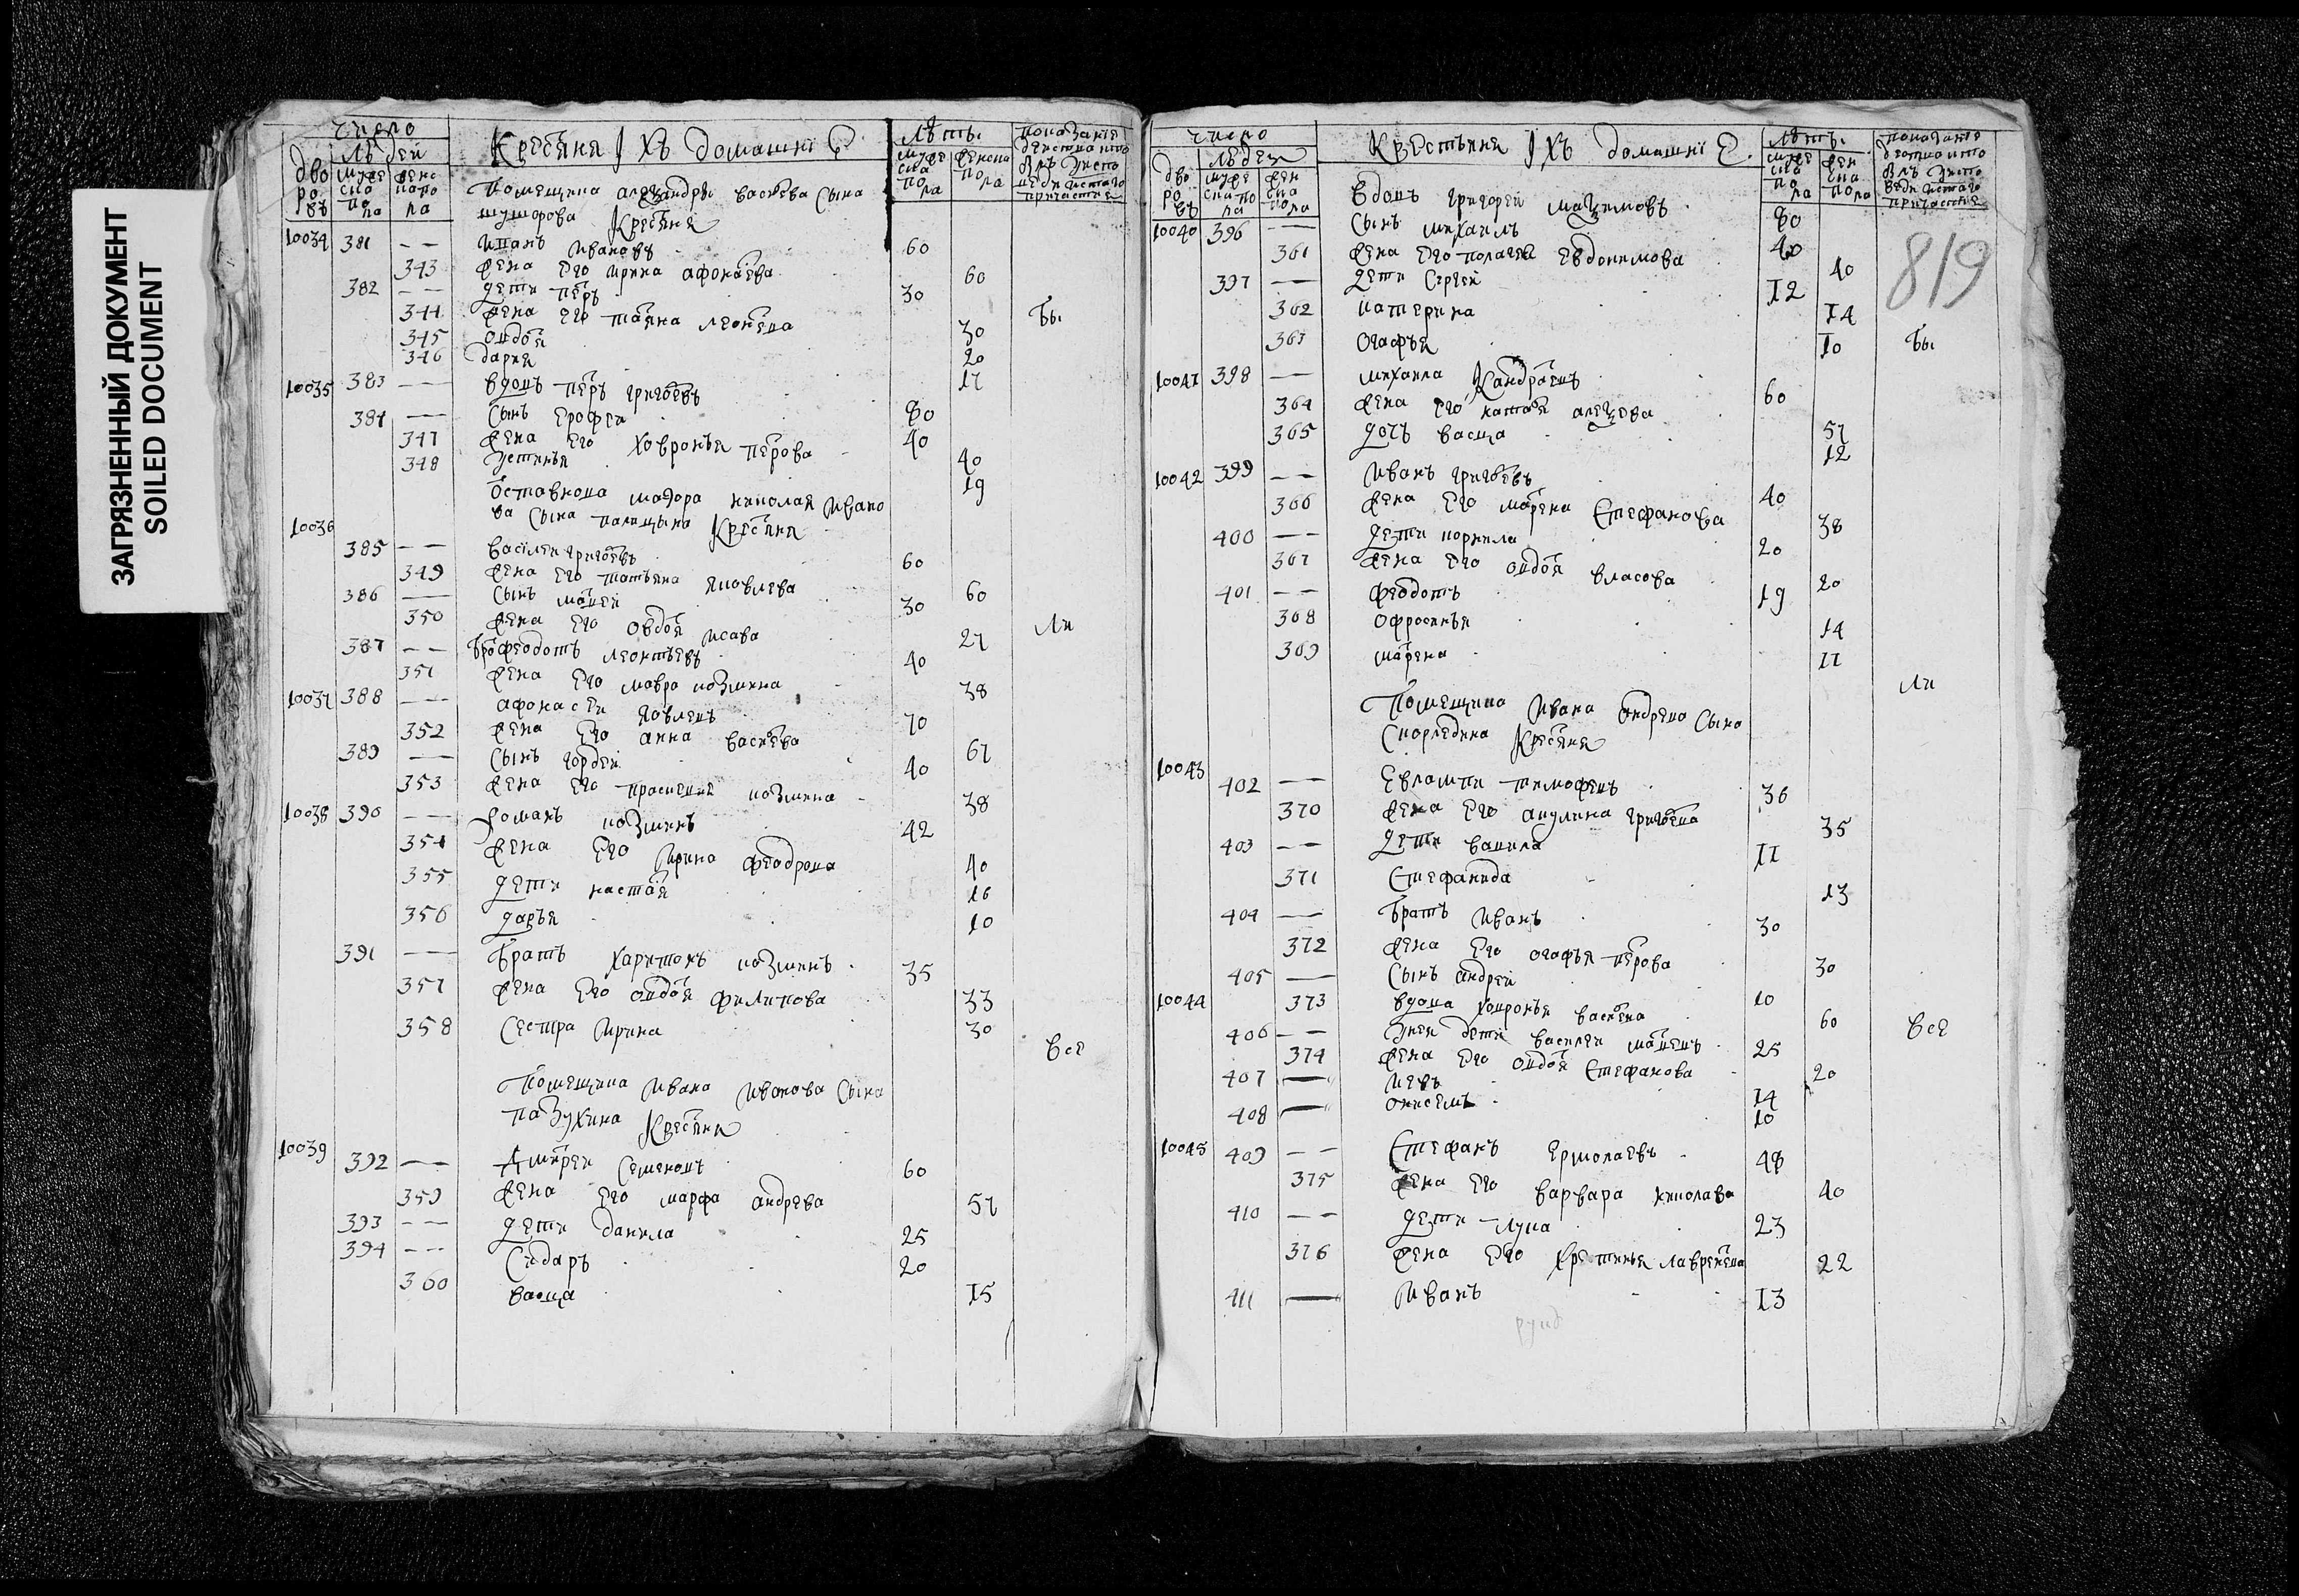 ЗАГРЯЗНЕННЫЙ ДОКУМЕНТ
SOILED DOCUMENT
число
людей
Крестяня I Хъ домашнiе
лѣты
дворовъ
мужеска пола
женска пола
мужеска пола
женска пола
показания
Помещика александры васева Сына
крестяня
10034 381 — — Иванъ Ивановъ 60
343 жена Его ирина афонаева 60
382 — — дети петръ 30
344 жена Его татяна леонева 30
345 овдотя 20
346 дария 17
бы
10035 383 — — вдовъ петръ григоевъ 80
384 — — Сынъ Ерофеи 40
347 жена Его Ховронья перова 40
348 устинья 19
отставнова маэора николая Ивано
ва Сына крестяня
10036
385 — — василеи григоевъ 60
349 жена Его татьяна яковлева 60
386 — — Сынъ матвеи 30
350 жена Его овдотя Исава 27
ли
387 — — братъ федотъ леонтьевъ 40
351 жена Его мавра козмина 38
10037 388 — — афонасеи яковлевъ 70
352 жена Его анна васева 67
389 — — Сынъ гордеи 40
353 жена Его прасковия козмина 38
10038 390 — — романъ козминъ 42
354 жена Его Ирина феодрова 40
355 дети настая 16
356 дарья 10
391 — — братъ харитонъ козминъ 35
357 жена Его овдотя филипова 33
358 Сестра Ирина 30
все
Помещика Ивана Иванова Сына
пазухина крестяня
10039 392 — — дмитреи Семеновъ 60
359 жена Его марфа андрева 57
393 — — дети данила 25
394 — — Сидаръ 20
360 васща 15
число
людеи
Крестьяня I Хъ домашнiе
лѣтъ
дворовъ
мужеска пола
женска пола
мужеска пола
женска пола
показания
819
10040 396 — — вдовъ григореи маѯимовъ 80
Сынъ михаилъ 40
361 жена Его полагея Евдокимова 40
397 — — дети Сергеи 12
362 катерина 14
363 огафья 10
бы
10041 398 — — михаила Кандратевъ 60
364 жена Его настая алеѯева 57
365 дочь васща 12
10042 399 — — Иванъ григоевъ 40
366 жена Его марена Стефанова 38
400 — — дети корнила 20
367 жена Его овдотя власова 20
401 — — феодотъ 19
368 офросинья 14
369 марена 11
ли
Помещика Ивана андрева Сына
Скорледина крестяня
10043
402 — — Евлампи тимофевъ 36
370 жена Его акулина григоева 35
403 — — дети вавила 11
371 Стефанида 13
404 — — братъ Иванъ 30
372 жена Его огафья перова 30
405 — — Сынъ андреи 10
10044 373 вдова ховронья васева 60
все
406 — — унеи дети василеи матвевъ 25
374 жена Его овдотя Стефанова 20
407 — — 14
408 — — онисемъ 10
10045 409 — — Стефанъ Ермолаевъ 48
375 жена Его варвара николава 40
410 — — дети лука 23
376 жена Его Хрестинья лавренева 22
411 — — Иванъ 13